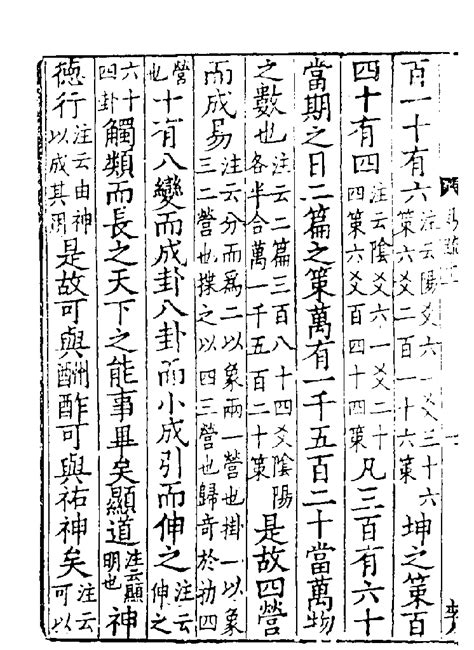 百一十有六注云陽爻六一爻三十六策六爻二百一十六策坤之策百
四十有四注云陰爻六一爻二十四策六爻百四十四策凡三百有六十
當期之日二篇之策萬有一千五百二十當萬物
之數也注云二篇三百八十四爻陰陽各半合萬一千五百二十策是故四營
而成易注云分而爲二以象兩一營也掛一以象三二營也揲之以四三營也歸奇於扐四
營也十有八變而成卦八卦而小成引而伸之注云伸之
六十四卦觸類而長之天下之能事畢矣顯道注云顯明也神
德行注云由神以成其用是故可與酬酢可與祐神矣注云可以